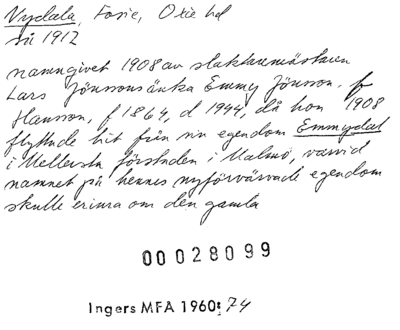 Vydala, Fosie, Oxie hd
sú 1912
namngivet 1908 av slaktaremästaren
Lars Jönssons änka Emmy Jönsson, f
Hansson, f 1864, d 1944, då hon 1908
flyttade hit från sin egendom Emmydal
i Mellersta förstaden i Malmö, varvid
namnet på hennes nyförvärvade egendom
skulle erinra om den gamla
00028099
Ingers MFA 1960: 74